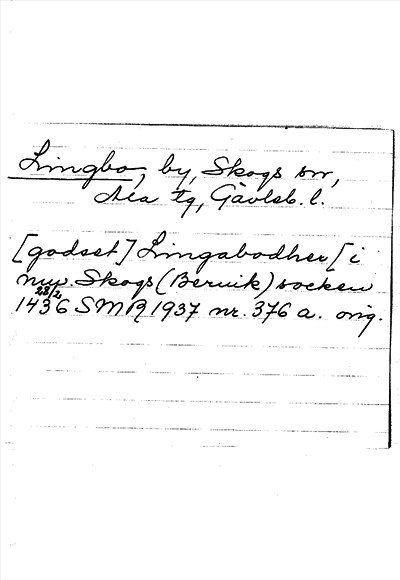 Lingbo, by, Skogs sn,
Ala tg, Gävleb. l.
[godset] Lingabodher [i
nuv. Skogs (Bervik) socken
28/2
1436 SMR 1937 nr. 376 a. orig.